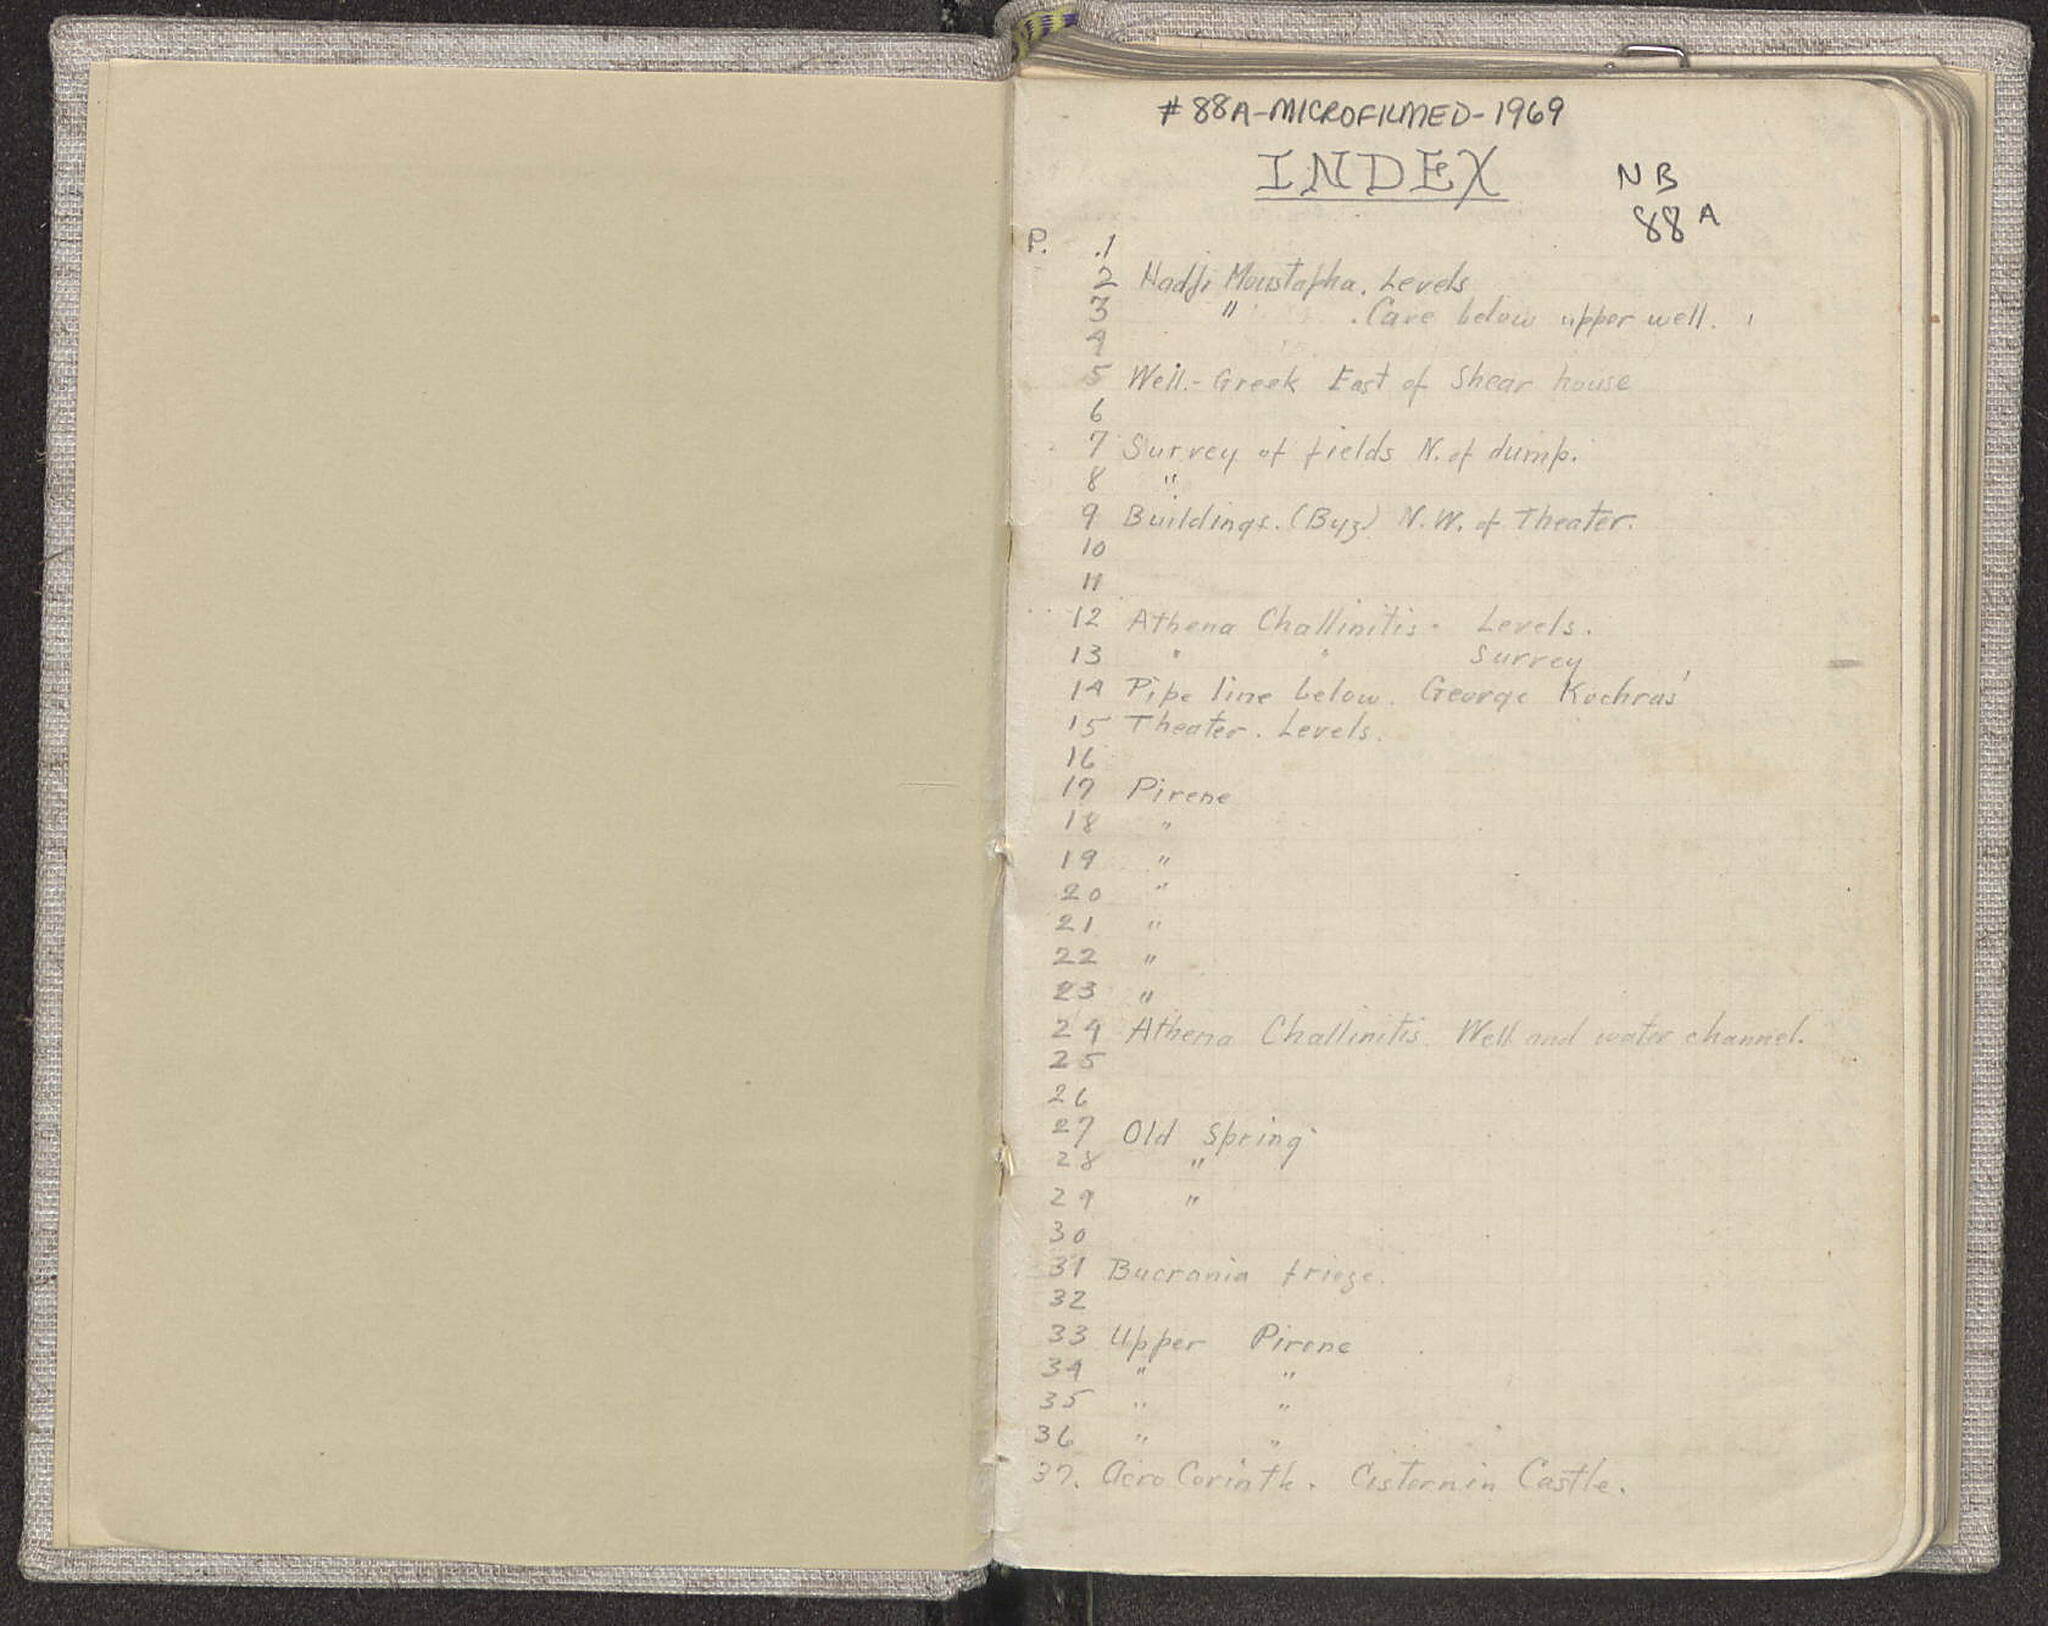 # 88A-MICROFILMED-1969
INDEX
NB
88 A
P. .1
2 Hadji Moustapha. Levels
3 " .Cave below upper well.
4
5 Well.- Greek East of Shear house
6
7 Survey of fields N. of dump.
8 "
9 Buildings. (Byz) N.W. of Theater.
10
11
12 Athena Challinitis. Levels.
13 " " Survey
14 Pipe line below. George Kochras'
15 Theater. Levels.
16
17 Pirene
18 "
19 "
20 "
21 "
22 "
23 "
24 Athena Challinitis Well and water channel.
25
26
27 Old Spring
28 "
29 "
30
31 Bucrania frieze.
32
33 Upper Pirene
34 " "
35 " "
36 " "
37. Acro Corinth. Cistern in Castle.